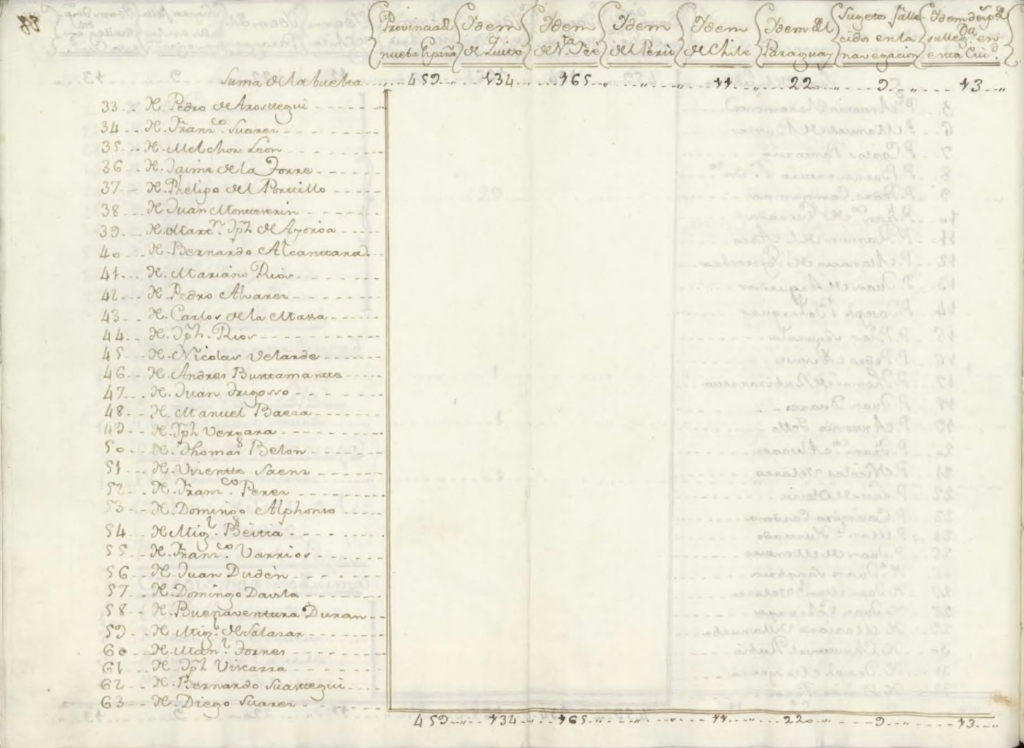 Provincia de nueba Españа
Idem de Quito
Idem de Nª. Feé
Idem del Perù
Idem de Chile
Idem del Paraguay
Sugetos falle cido en la navegacion
Suma de la buelta 459 134 165 11 22 9 13
33 H. Pedro de Arosttegui
34 H. Franco. Suarez
35 H. Melchor Leon
36 H. Jaime de la Torre
37 H. Phelipe del Porttillo
38 H. Juan Montteverin
39 H. Marn. Jph de Ayoroa
40 H. Bernardo Alcanttara
41 H. Mariano Rios
42 H. Pedro Alvarez
43 H. Carlos de la Massa
44 H. Jph. Rios
45 H. Nicolas Velarde
46 H. Andres Busttamantte
47 H. Juan Frigosso
48 H. Manuel Baeza
49 H. Jph Vergara
50 H. Thomas Beton
51 H. Vizentte Saenz
52 H. Franco. Perez
53 H. Domingo Alphonso
54 H Migl. Beitia
55 H. Franco. Varrios
56 H. Juan Duden
57 H. Domingo Davila
58 H. Buenaventura Duran
59 H. Migl. de Salazar
60 H. Manl. Torres
61 H. Jph Viscarra
62 H. Bernardo Suasttegui
63 H. Diego Suarez
459 134 165 11 22 9 13